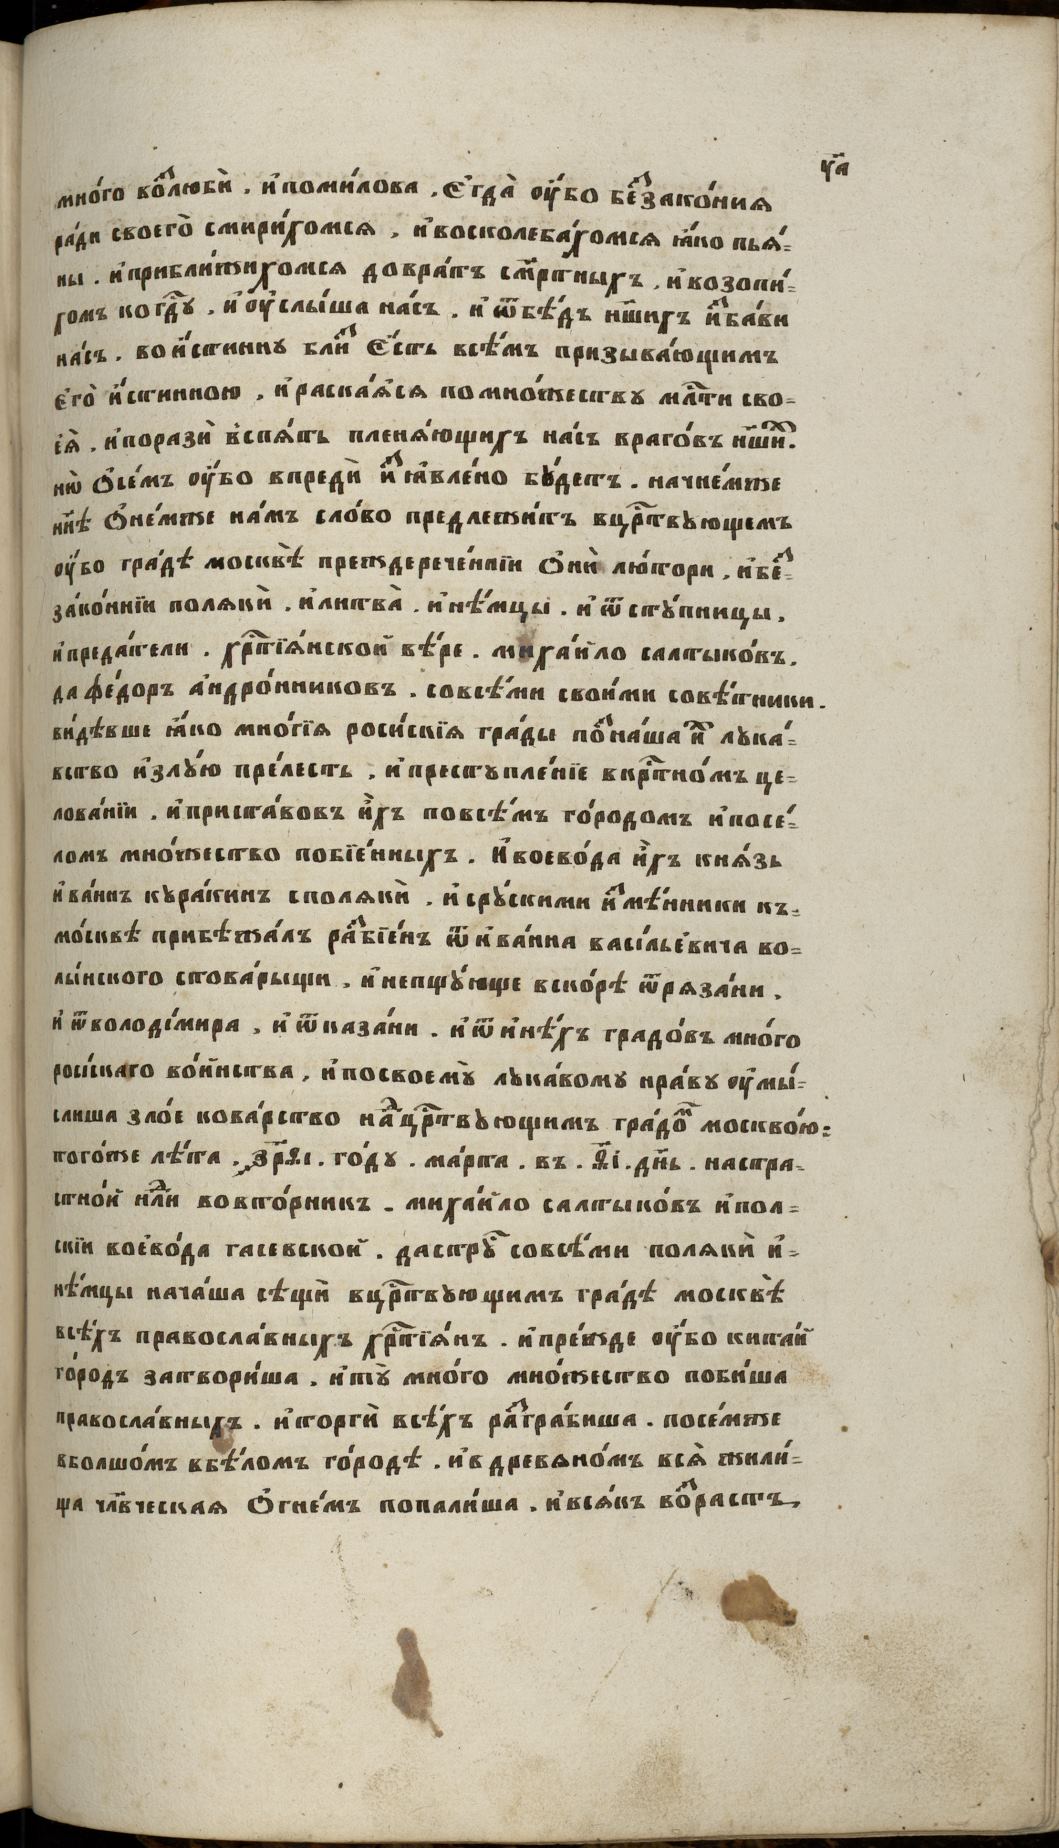 ч҃а
мно́го воⷥлюбѝ . и҆поми́лова . Е҆гда̀ оу҆́бо беⷥзако́нїѧ
ра́ди своего̀ смири́хомсѧ , и҆восколеба́хомсѧ ꙗ҆́ко пьѧ́-
ны . и҆прибли́жихомсѧ довра́тъ см҃ртныхъ , и҆возопи́-
хомъ ко гдⷭ҇ꙋ , и҆оу҆слы́ша на́съ . и҆ѿбѣ́дъ н҃шихъ и҆ⷥба́ви
на́съ . вои́стиннꙋ блиⷥ Е҆́сть всѣ́мъ призыва́ющимъ
є҆го̀ и҆́стинною , и҆раска́ѧсѧ помно́жествꙋ млⷭ҇ти сво-
еѧ̀ . и҆поразѝ вспѧ́ть плѣнѧ́ющихъ на́съ враго́въ н҃шиⷯ.
нѡ̀ Ѻ҆се́мъ оу҆́бо впредѝ иⷥꙗ҆вле́но бꙋ́детъ . начне́мже
нн҃ѣ Ѻ҆не́мже на́мъ сло́во предлежи́тъ вцрⷭ҇твꙋющемъ
оу҆́бо гра́дѣ москвѣ̀ преждерече́ннїи Ѻ҆нѝ лю́тори , и҆беⷥ-
зако́ннїи полѧкѝ . и҆литва̀ . и҆нѣ́мцы . и҆ѿстꙋ́пницы .
и҆преда́тели . хрⷭ҇тїѧ́нской вѣ́ре . миха́йло салтыко́въ .
да фе́доръ андро́нниковъ . совсѣ́ми свои́ми совѣ́тники .
ви́дѣвше ꙗ҆́ко мно́гїѧ роси́скїѧ гра́ды поⷥна́ша и҆ⷯ лꙋка́-
вство и҆злꙋ́ю пре́лесть , и҆престꙋпле́нїе вкрⷭ҇тно́мъ це-
лова́нїи . и҆приста́вовъ и҆́хъ повсѣ́мъ го́родомъ и҆посе́-
ломъ мно́жество побїе́нныхъ . И҆воево́да и҆́хъ кнѧ́зь
и҆ва́нъ кꙋра́кинъ сполѧкѝ . и҆срꙋ́скими и҆ⷥмѣ́нники къ-
мо́сквѣ прибѣжа́лъ раⷥбїе́нъ ѿи҆ва́нна васи́льевича во-
лы́нского стова́рыщи . и҆непщꙋ́юще вско́рѣ ѿрѧза́ни .
и҆ ѿволоди́мира , и҆ ѿказа́ни . и҆ ѿи҆нѣ́хъ градо́въ мно́го
роси́скаго во́йнства , и҆посвоемꙋ̀ лꙋка́вомꙋ нра́вꙋ оу҆мы́-
слиша зло́е кова́рство наⷣцрⷭ҇твꙋющимъ гра́доⷨ москво́ю:
того́же лѣ́та . ҂зр҃ѳі . го́дꙋ . ма́рта . въ . ѳ҃і . дн҃ь . настра-
стно́й нⷣли вовто́рникъ . миха́йло салтыко́въ и҆пол-
скїи воево́да гасевской . дастрꙋⷭ҇ совсѣ́ми полѧкѝ и҆-
нѣ́мцы нача́ша сѣщѝ вцрⷭ҇твꙋющимъ гра́дѣ москвѣ̀
всѣ́хъ правосла́вныхъ хрⷭ҇тїѧ́нъ . и҆пре́жде оу҆́бо кита́й
го́родъ затвори́ша . и҆тꙋ̀ мно́го мно́жество поби́ша
правосла́вныхъ . и҆торгѝ всѣ́хъ раⷥгра́биша . посе́мже
вболшо́мъ вбѣ́ломъ го́родѣ . и҆вдревѧно́мъ всѧ̀ жили́-
ща чл҃вческаѧ Ѻ҆гне́мъ попали́ша . и҆всѧ́къ воⷥрастъ,